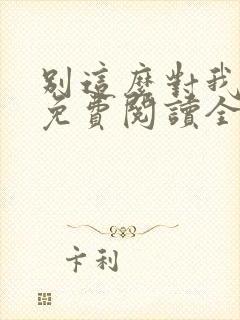 別這麼對我
免費閱讀全
卡利